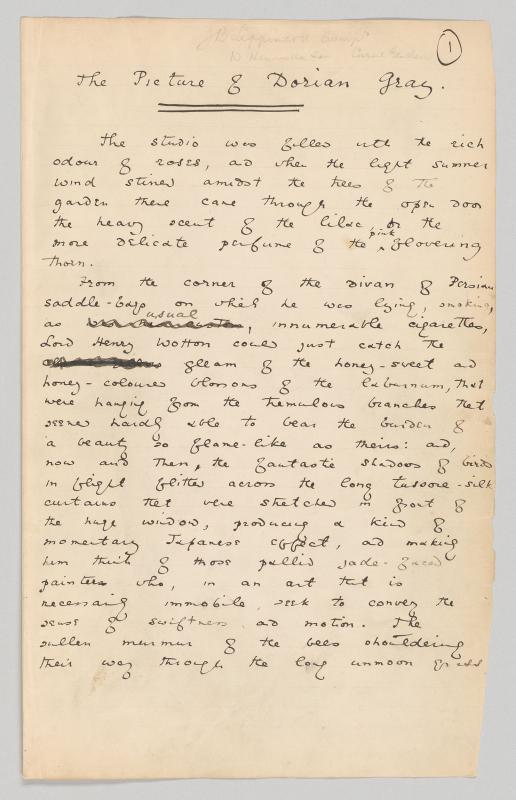 J B Lippincott Comp
1
The Picture of Dorian Gray.
The studio was filled with the rich
odour of roses, and when the light summer
wind stirred amidst the trees of the
garden there came through the open door
the heavy scent of the lilac, or the
pink
more delicate perfume of the flowering
thorn.
From the corner of the divan of Persian
saddle-bags on which he was lying, smoking,
usual
as innumerable cigarettes,
Lord Henry Wotton could just catch the
gleam of the honey-sweet and
honey-coloured blossoms of the laburnum, that
were hanging from the tremulous branches that
seemed hardly able to bear the burden of
a beauty so flame-like as theirs: and,
now and then, the fantastic shadows of birds
in flight flitted across the long tussore-silk
curtains that were stretched in front of
the huge window, producing a kind of
momentary Japanese effect, and making
him think of those pallid jade-faced
painters who, in an art that is
necessarily immobile, seek to convey the
sense of swiftness and motion. The
sullen murmur of the bees shouldering
their way through the long unmown grass